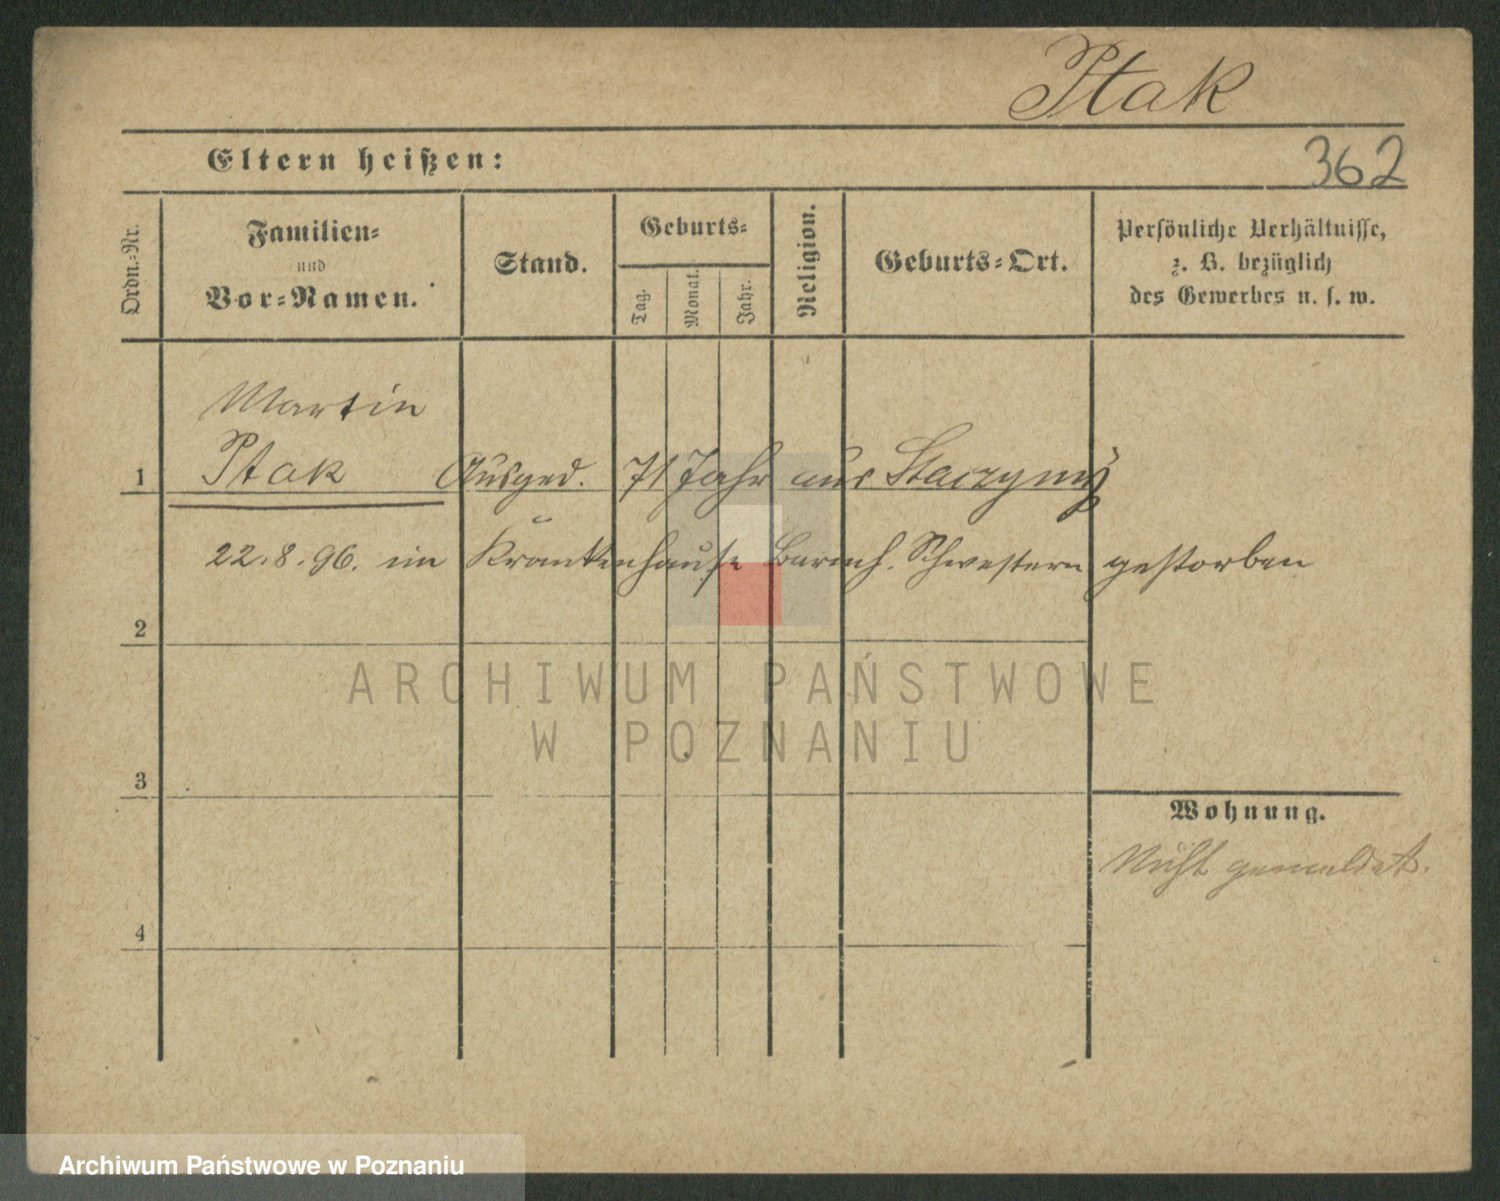 Ptak
Eltern heißen:
362
Ordn.-Nr.
Familien-
und
Vor-Namen.
Stand.
Geburts-
Tag.
Monat.
Jahr.
Religion.
Geburts-Ort.
Persönliche Verhältnisse,
z. B. bezüglich
des Gewerbes u. s. w.
Martin
1 Ptak Ausged. 71 Jahr aus
22.8.96. im Krankenhause Barmh. Schwestern gestorben
2
ARCHIWUM PAŃSTWOWE
W POZNANIU
3
Wohnung.
Nicht gemeldet.
4
Archiwum Państwowe w Poznaniu